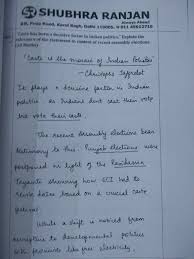 SHUBHRA RANJAN
"Caste has been a decisive factor in Indian politics." Explain the
relevance of the statement in context of recent assembly elections.
"Caste is the mosaic of Indian Politics"
- Christophe Jaffrelot
It plays a decisive factor in Indian
politics as Indians dont cast their vote
but vote their caste.
The recent Assembly elections bear
testimony to this. Punjab elections were
postponed in light of the Ravidassia
Jayanti showing how ECI had to
revise dates based on a crucial caste
festival
While a shift is noticed from
to developmental politics
with promises like free electricity,